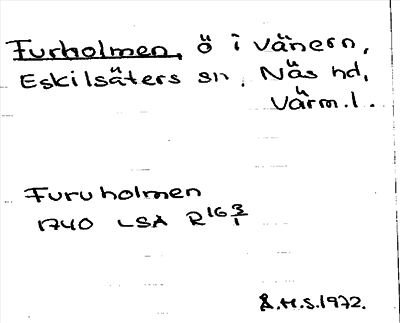 Furholmen, ö i Vänern,
Eskilsäters sn. Näs hd,
Värm. l.
Furuholmen
1740 LSA R16 3/1
Å.H.S. 1972.